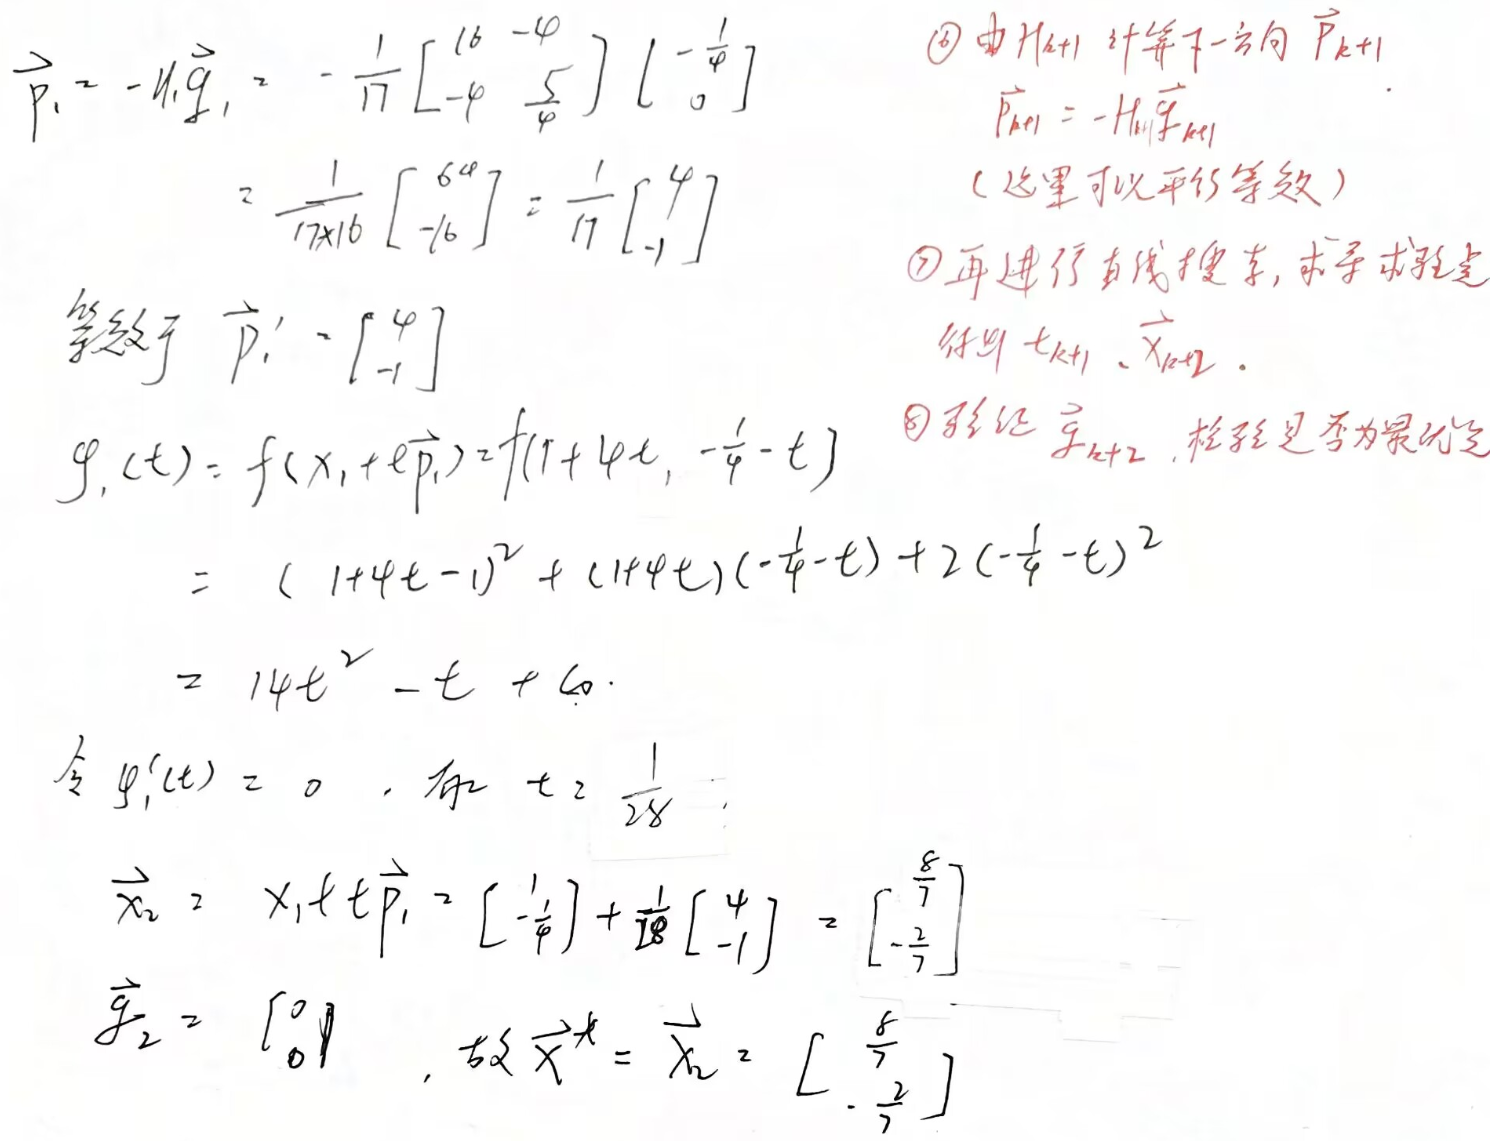 p⃗₁ = -H₁g⃗₁ = -1/17 [16 -4; -4 5/4] [-1/4; 0]
= 1/(17×16) [64; -16] = 1/17 [4; -1]
等效于 p⃗₁' = [4; -1]
φ₁(t) = f(x₁ + tp⃗₁) = f(1+4t, -1/4 - t)
= (1+4t-1)² + (1+4t)(-1/4 - t) + 2(-1/4 - t)²
= 14t² - t + C₀.
令 φ₁'(t) = 0 , 有 t = 1/28 .
x⃗₂ = x₁ + tp⃗₁ = [1; -1/4] + 1/28 [4; -1] = [8/7; -2/7]
g⃗₂ = [0; 0] , 故 x⃗* = x⃗₂ = [8/7; -2/7]
⑥ 由 Hₖ₊₁ 计算下一方向 p⃗ₖ₊₁
p⃗ₖ₊₁ = -Hₖ₊₁g⃗ₖ₊₁
(这里可以平行等效)
⑦ 再进行直线搜索, 求导求驻点
得出 tₖ₊₁ 、x⃗ₖ₊₂ .
⑧ 验证 g⃗ₖ₊₂ , 检验是否为最优点